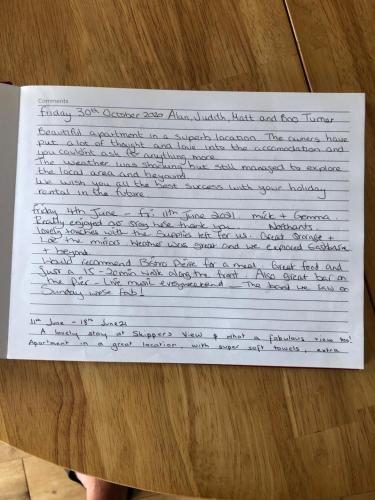 Comments
Friday 30th October 2020 Alan, Judith, Matt and Boo Turner
Beautiful apartment in a superb location. The owners have
put a lot of thought and love into the accomodation and
you couldn't ask for anything more.
The weather was shocking but still managed to explore
the local area and beyond
We wish you all the best success with your holiday
rental in the future
Friday 4th June - Fri 11th June 2021 mick + Gemma.
Really enjoyed our stay here thank you. Northants.
lovely touches with the supplies left for us. Great Storage +
the mirrors. Weather was great and we explored Eastbourne
+ beyond.
Would recommend Bistro Pierre for a meal. Great food and
Just a 15-20min walk along the front. Also great bar on
the Pier - Live music every weekend - The band we saw on
Sunday were fab!
11th June - 18th June 21
A lovely stay at Skippers View & what a fabulous view too!
Apartment in a great location, with super soft towels, extra